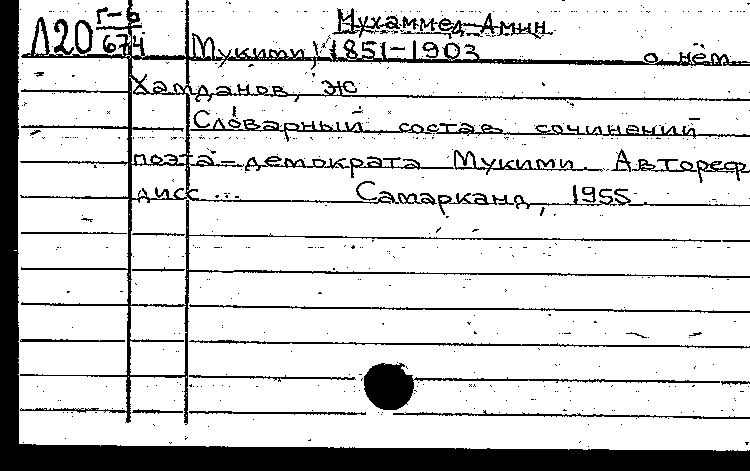 Л20 Г-6/674
Мухаммед-Амин
Мукими, 1851-1903 о нём
Хамданов, Ж
Словарный состав сочинений
поэта-демократа Мукими. Автореф
дисс... Самарканд, 1955.